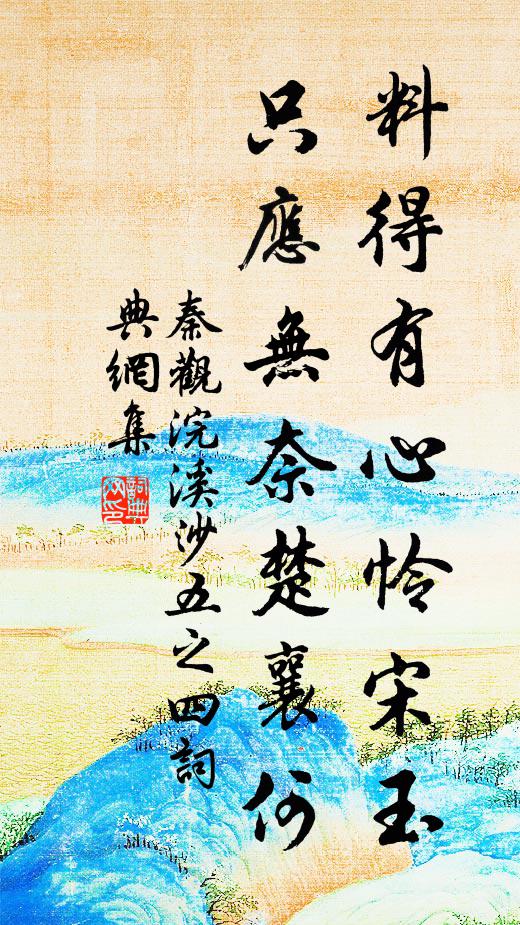 料得有心怜宋玉
只應無奈楚襄何
秦觀浣溪沙五之四詞
典網集